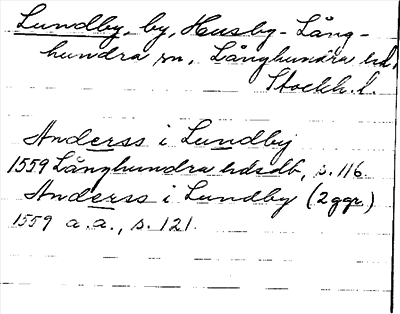 Lundby, by, Husby-Lång-
hundra sn, Långhundra hd,
Stockh. l.
Anderss i Lundby
1559 Långhundra hdsdb, s. 116.
Anderss i Lundby (2 ggr.)
1559 a.a., s. 121.